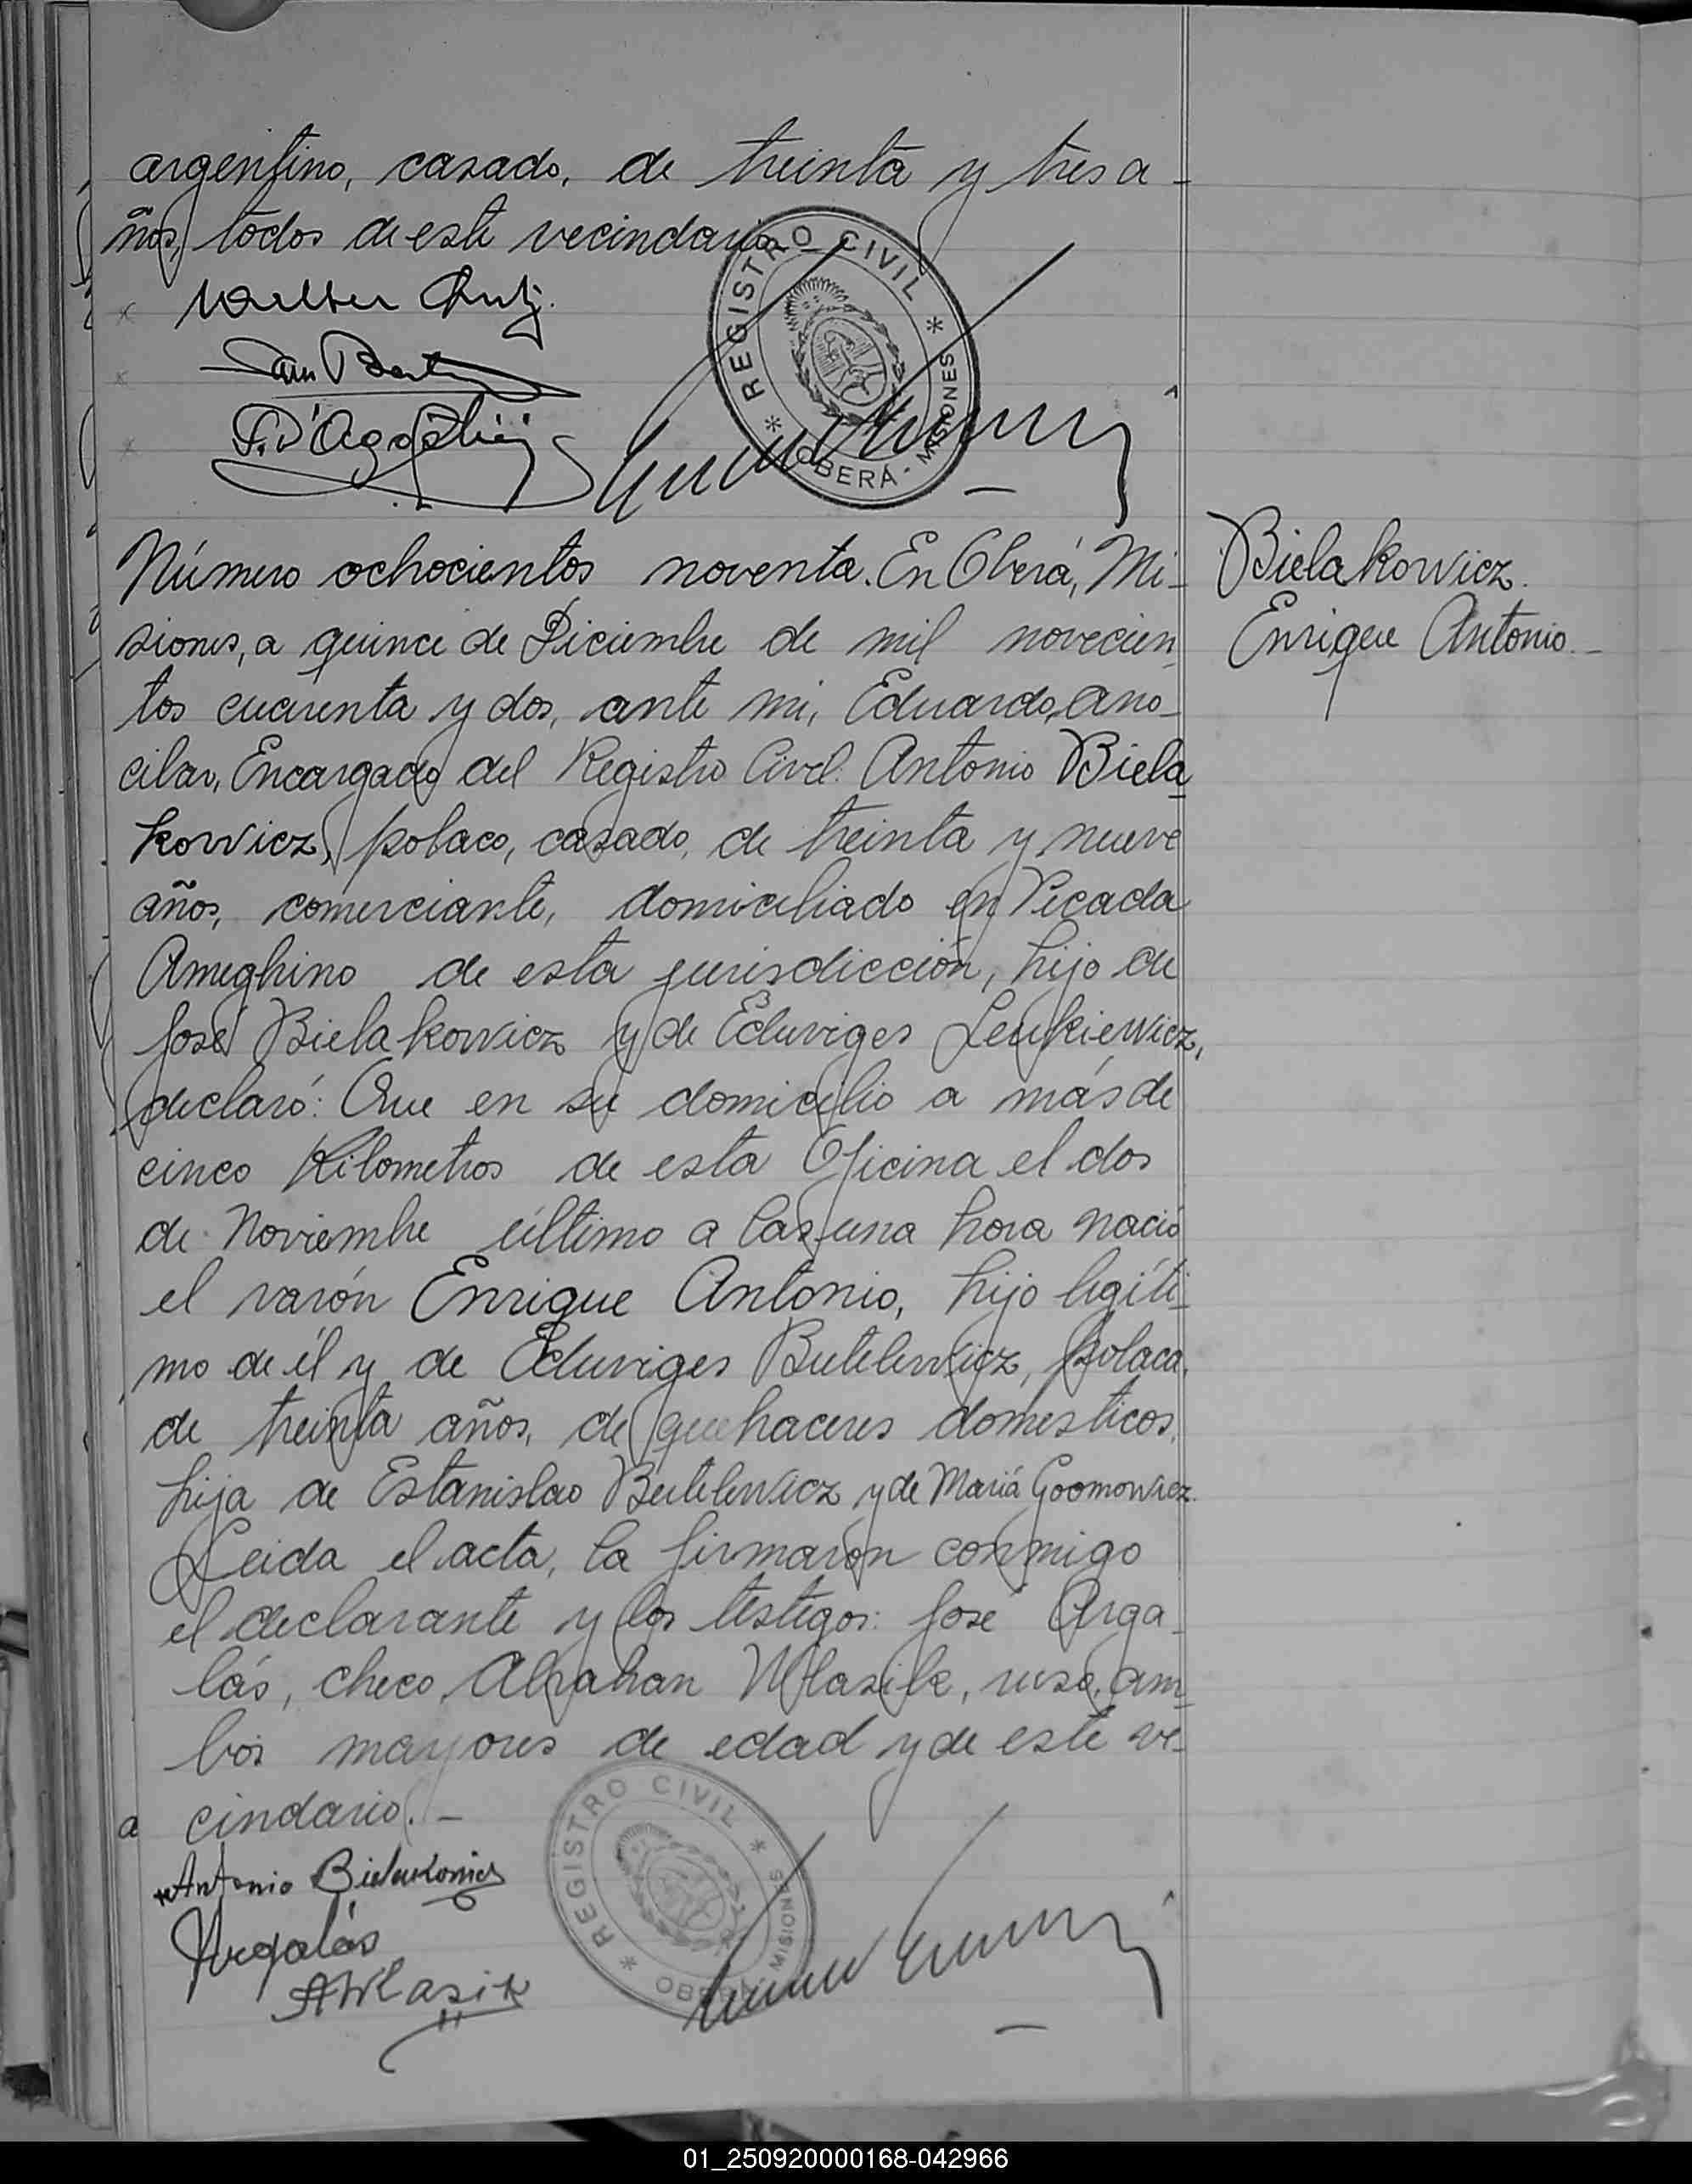 argentino, casado, de treinta y tres a-
ños, todos de este vecindario.-
Walter
REGISTRO CIVIL * OBERÁ - MISIONES *
F. D'Agostini
Número ochocientos noventa. En Oberá, Mi-
Bielakowicz.
siones, a quince de Diciembre de mil novecien
Enrique Antonio.-
tos cuarenta y dos, ante mi, Eduardo Ano-
cibar, Encargado del Registro Civil. Antonio Biela
kowicz, polaco, casado, de treinta y nueve
años, comerciante, domiciliado en Picada
Ameghino de esta jurisdicción, hijo de
José Bielakowicz y de Eduviges Leukiewicz,
declaró: Que en su domicilio a más de
cinco Kilometros de esta Oficina el dos
de Noviembre último a las una hora nació
el varón Enrique Antonio, hijo legíti-
mo de él y de Eduviges Butelewicz, polaca,
de treinta años, de quehaceres domesticos,
hija de Estanislao Butelewicz y de Mariá Goomowicz.
Leida el acta, la firmaron conmigo
el declarante y los testigos: José Arga-
lás, checo, Abrahan Wlasik, ruso, am-
bos mayores de edad y de este ve-
a cindario.-
Antonio Bielakowicz
REGISTRO CIVIL * OBERÁ - MISIONES *
Argalás
AWlasik
01_250920000168-042966